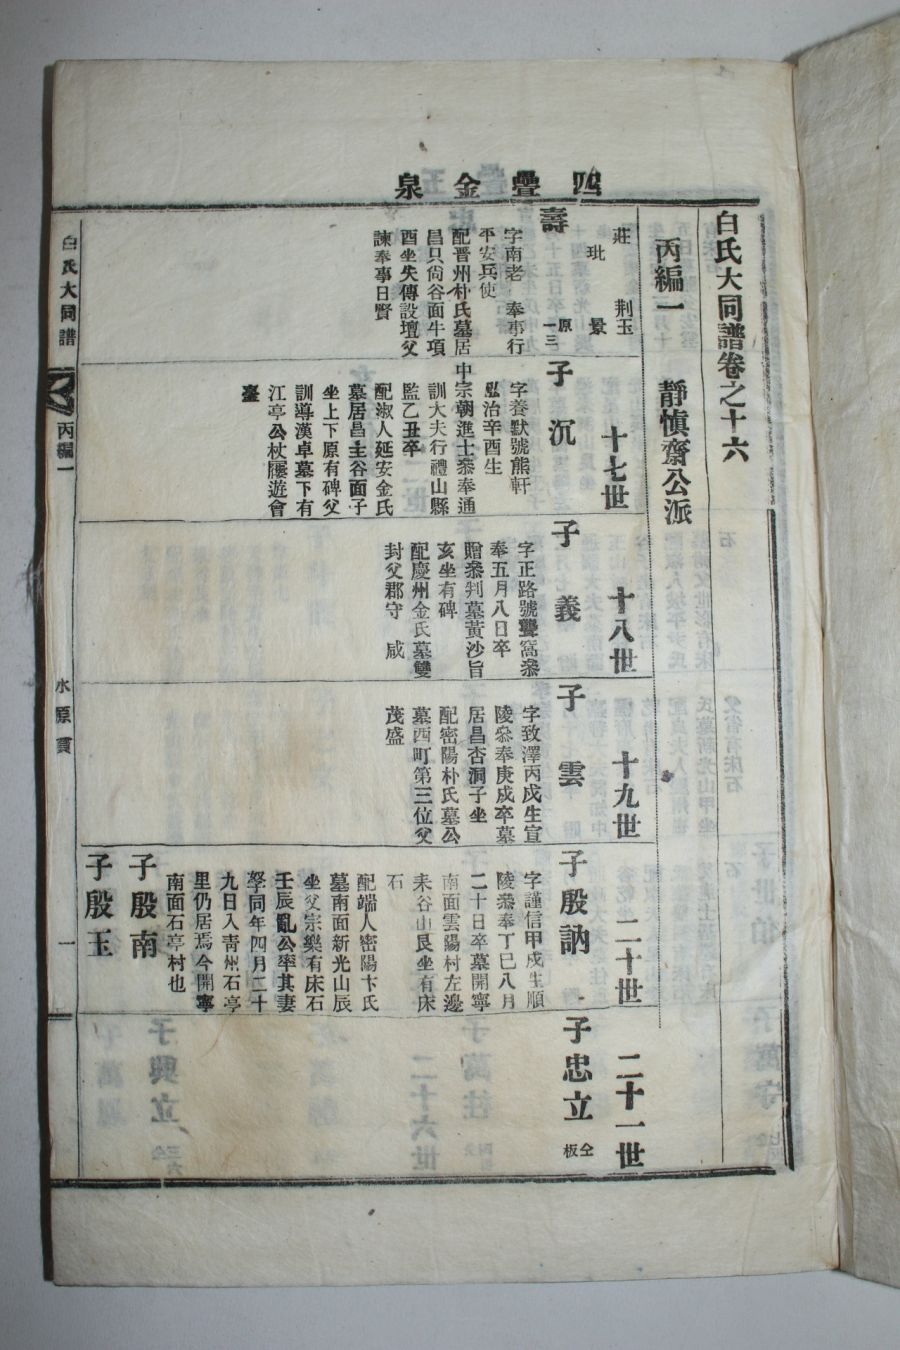 四疊金泉
白氏大同譜卷之十六
丙編一 靜愼齋公派
莊 荆玉
玭 景
壽 原一三
字南老 奉事行
平安兵使
配晉州朴氏墓居
昌只尙谷面牛項
酉坐失傳設壇父
諫奉事日賢
十七世
子沉
字養默號熊軒
弘治辛酉生
中宗朝進士叅奉通
訓大夫行禮山縣
監乙丑卒
配淑人延安金氏
墓居昌主谷面子
坐上下原有碑父
訓導漢卓墓下有
江亭公杖屨遊會
臺
十八世
子義
字正路號聾窩叅
奉五月八日卒
贈叅判墓黃沙旨
亥坐有碑
配慶州金氏墓雙
封父郡守 咸
十九世
子雲
字致澤丙戌生宣
陵叅奉庚戌卒墓
居昌杏洞子坐
配密陽朴氏墓公
墓西町第三位父
茂盛
二十世
子殷訥
字謹信甲戌生順
陵叅奉丁巳八月
二十日卒墓開寧
南面雲陽村左邊
耒谷山艮坐有床
石
配端人密陽卞氏
墓南面新光山辰
坐父宗樂有床石
壬辰亂公率其妻
孥同年四月二十
九日入靑州石亭
里仍居焉今開寧
南面石亭村也
子殷南
子殷玉
二十一世
子忠立 仝板
白氏大同譜
丙編一
水原貫
一